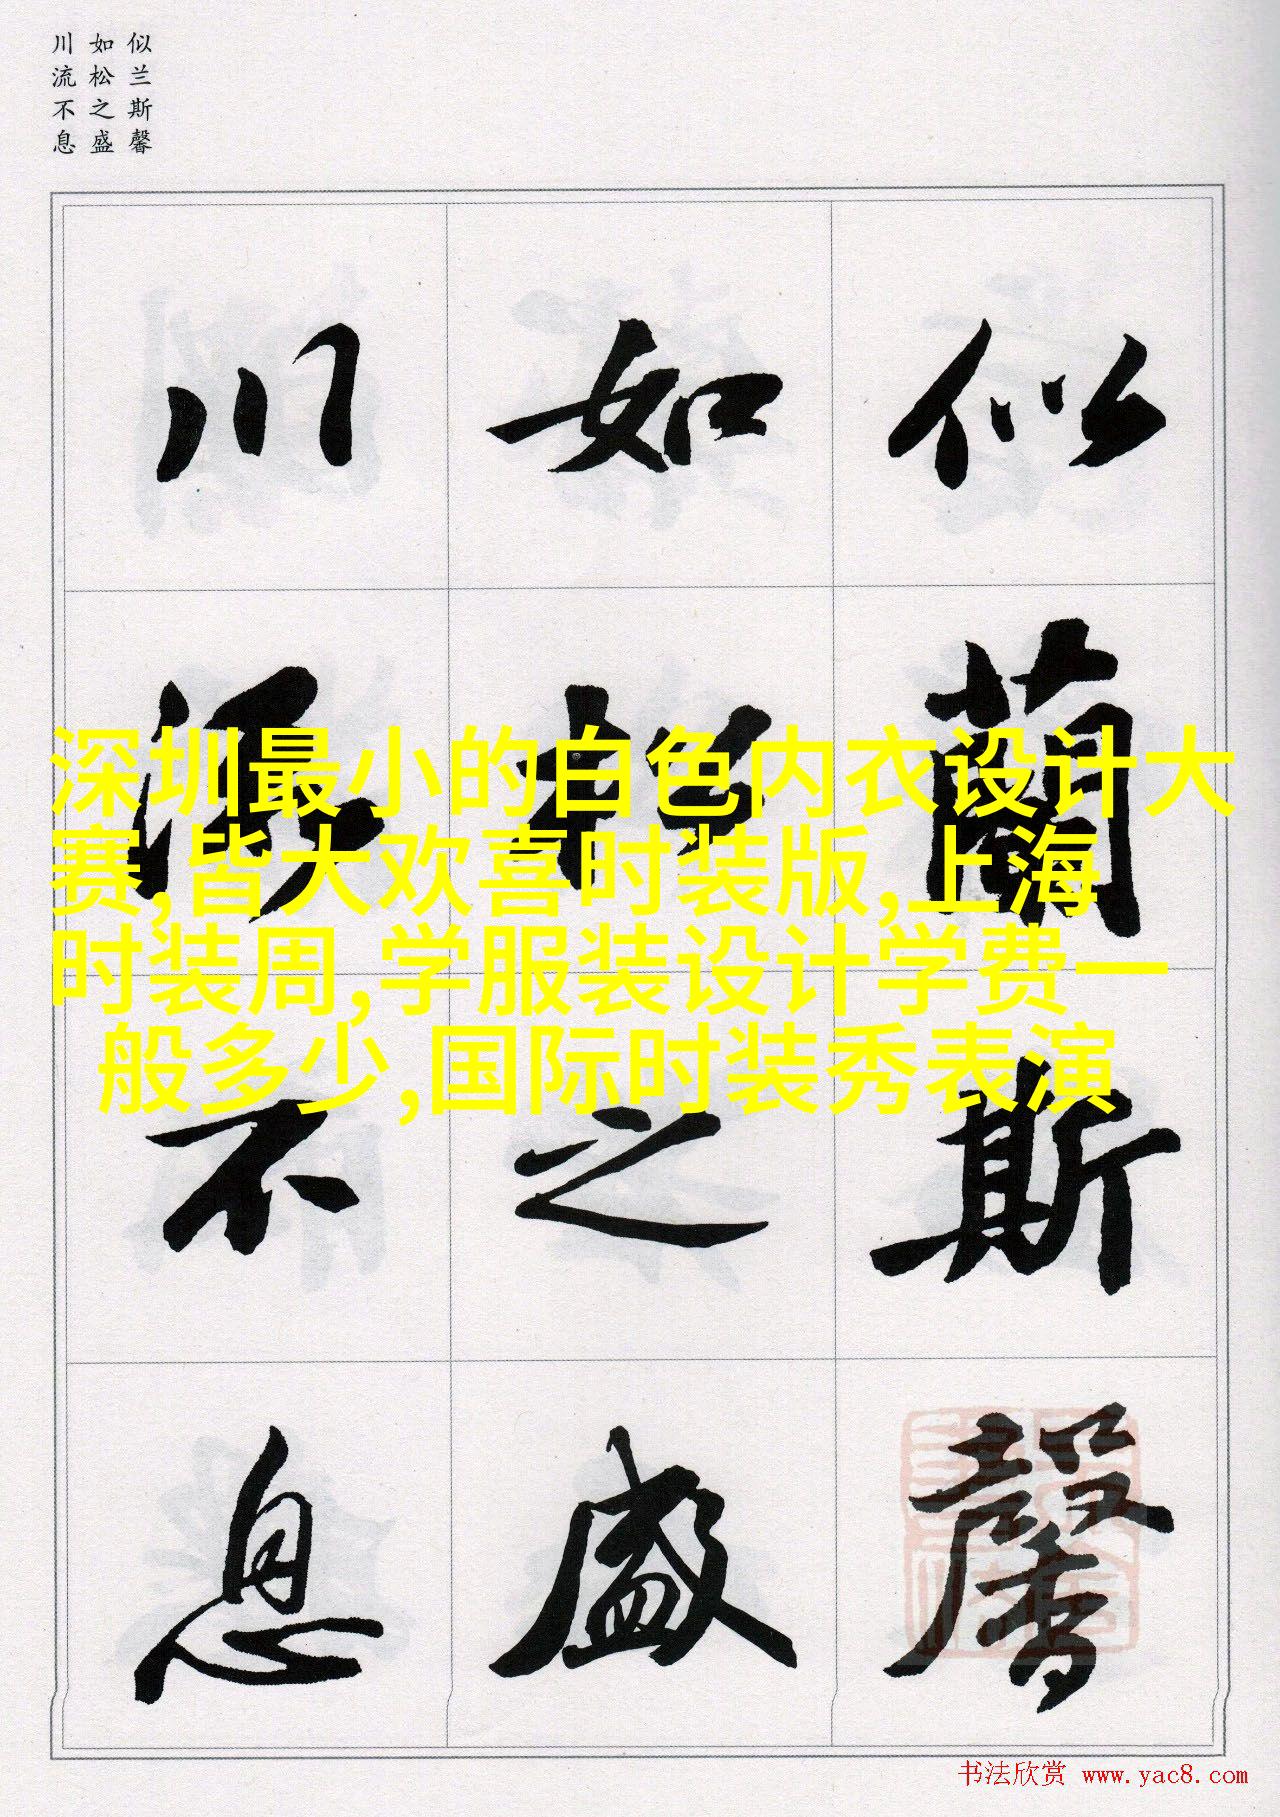 似兰斯馨
如松之盛
川流不息
似蘭斯馨
如松之盛
川流不息
深圳最小的白色内衣设计大
赛,皆大欢喜时装版,上海
时装周,学服装设计学费一
般多少,国际时装秀表演
书法欣赏 www.yac8.com